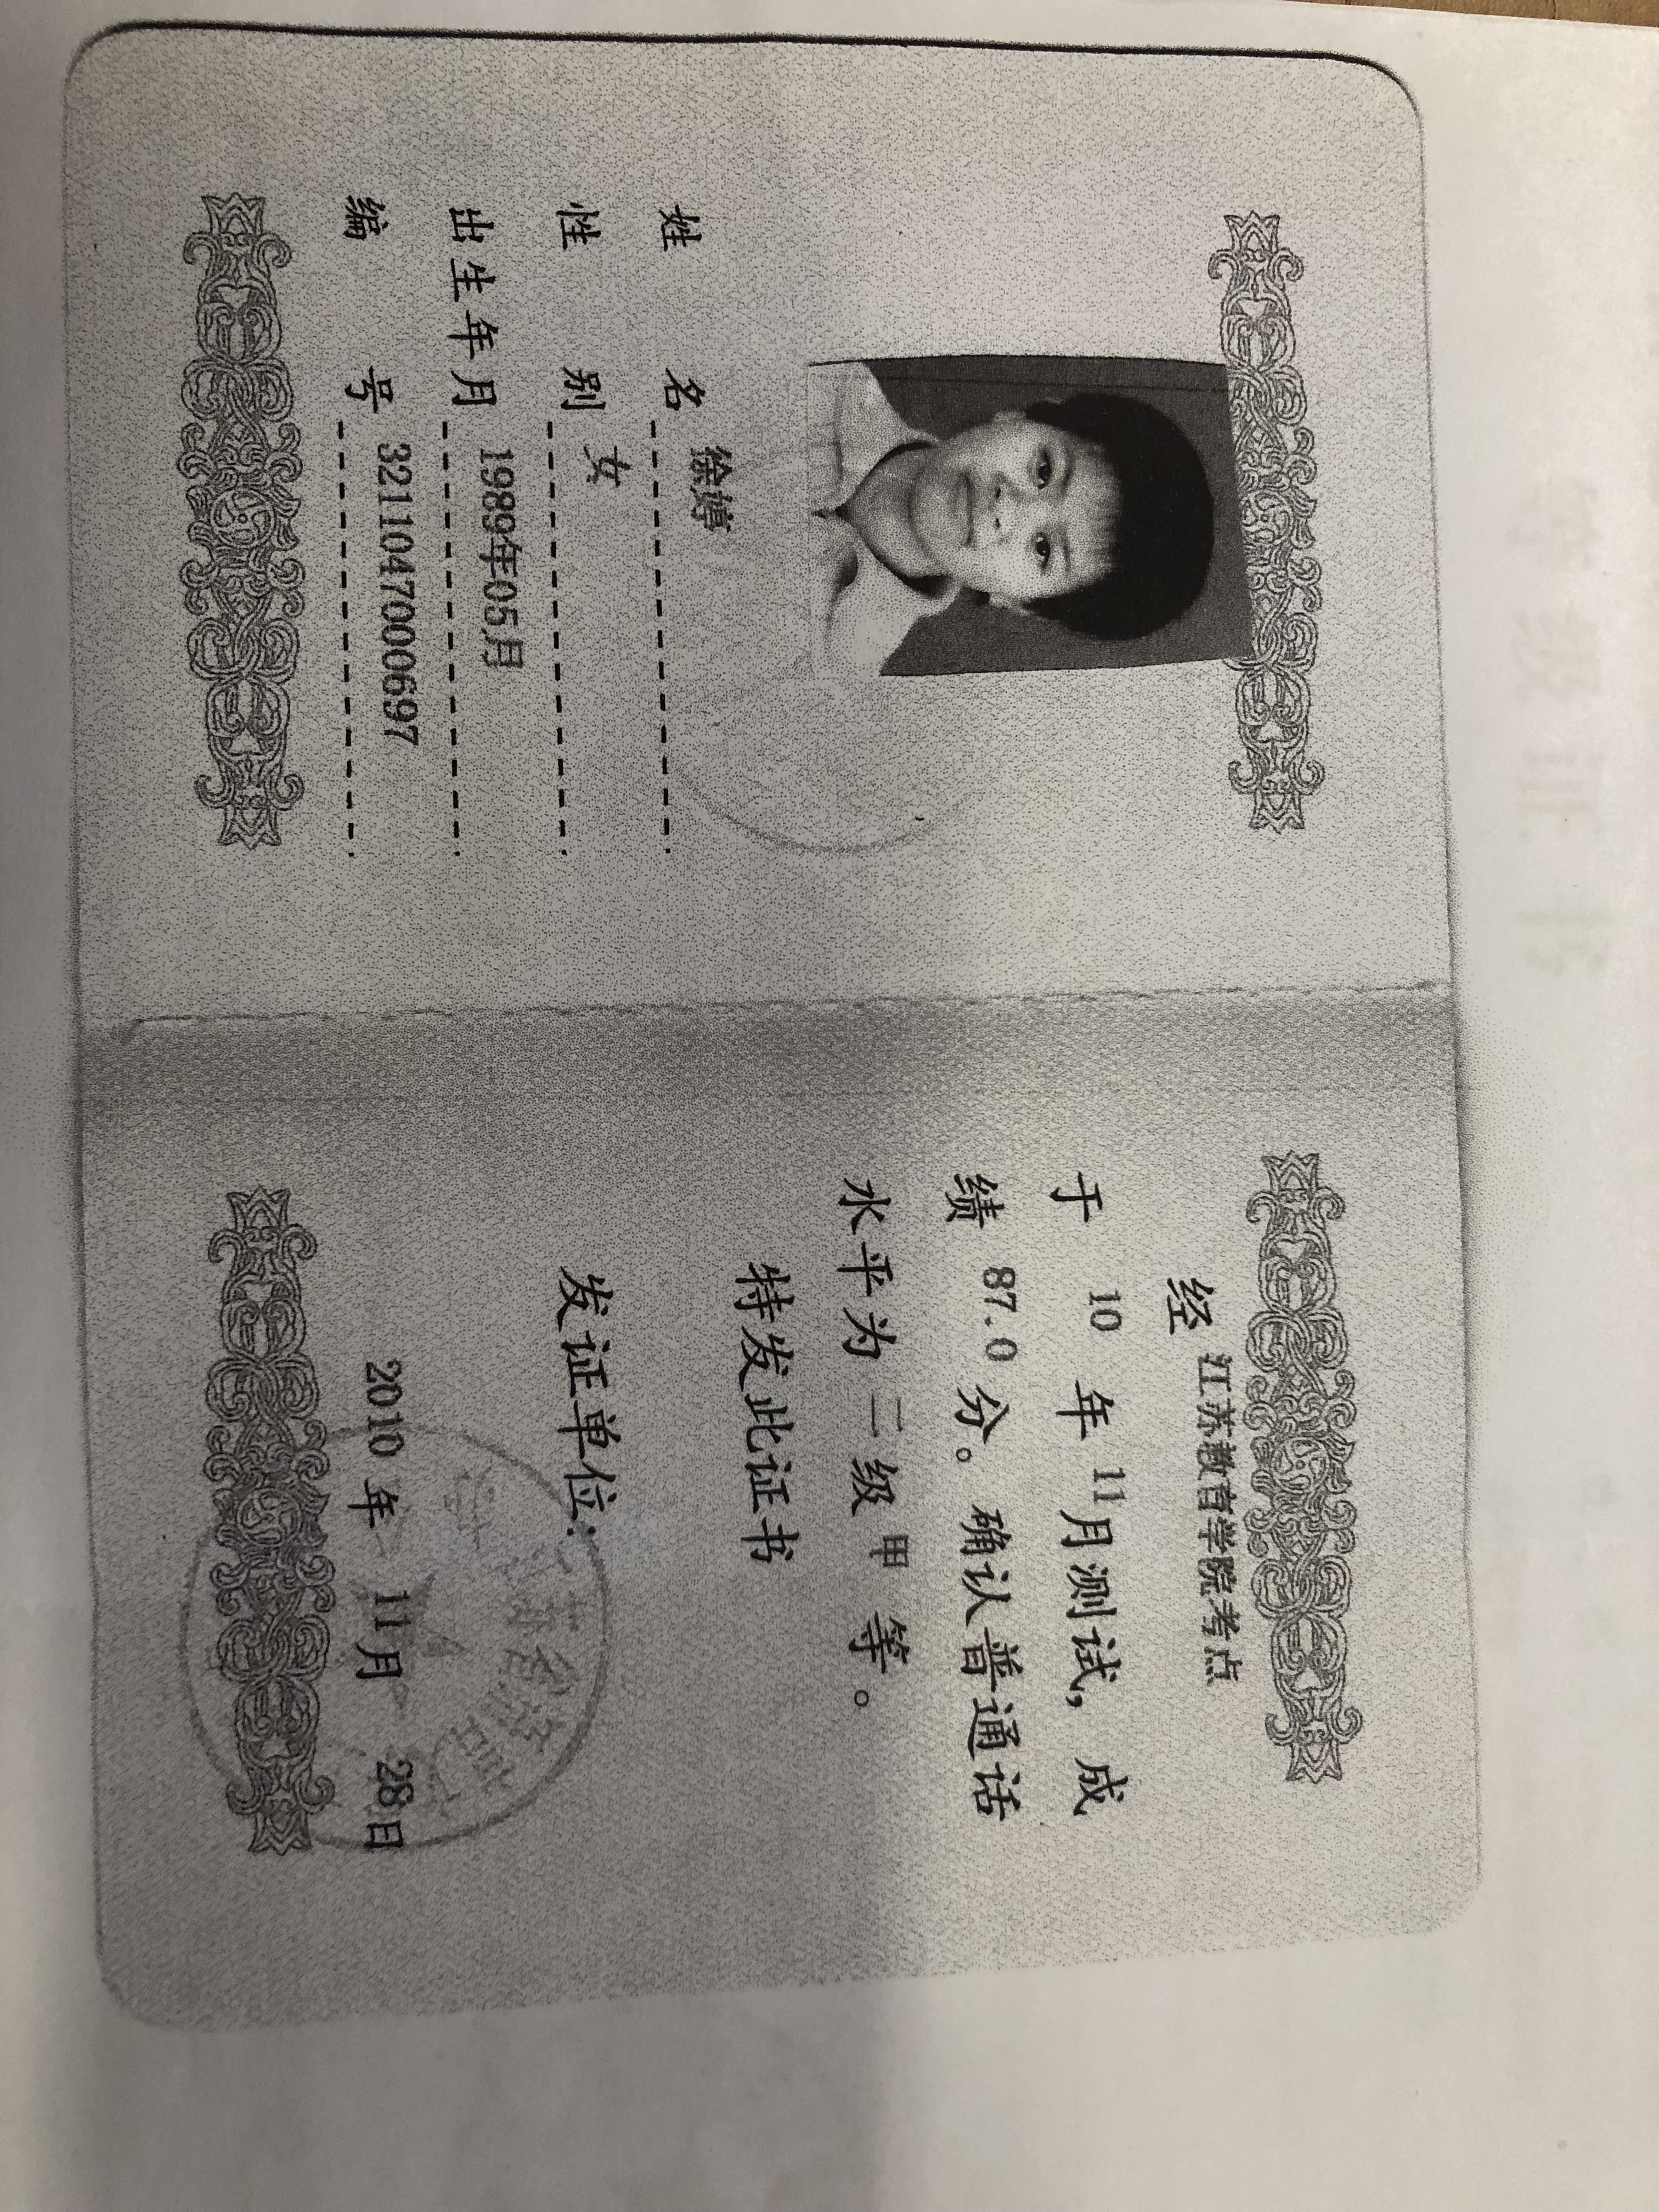 姓名 徐婷
性别 女
出生年月 1989年05月
编号 3211047000697
经 江苏教育学院考点
于 10 年 11月测试，成
绩 87.0 分。确认普通话
水平为 二级 甲 等。
特发此证书
发证单位：
2010 年 11月 28日